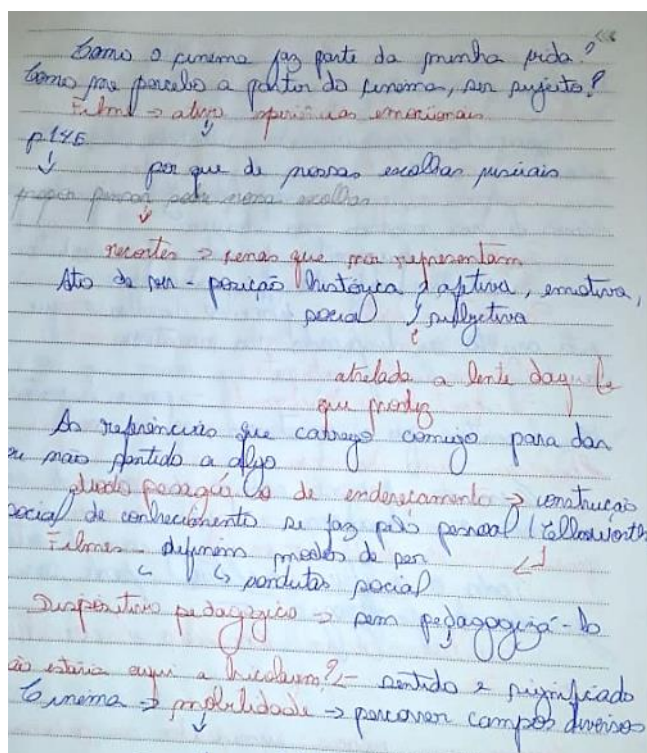 Como o cinema faz parte da minha vida?
Como me percebo a partir do cinema, ser sujeito?
Filme → algo experiências emocionais
p146
por que de nossas escolhas
propor pensar sobre nossas escolhas
recortes → cenas que nos representam
Ato de ver - posição histórica, afetiva, emotiva,
social / subjetiva
atrelada a lente daquele
que produz
As referências que carrego comigo para dar
ou não sentido a algo
pedagógico de endereçamento → construção
social de conhecimento se faz pelo pessoal (Ellsworth
Filmes - definem modos de ser
↳ ↳ condutas social
Dispositivo pedagógico → sem pedagogizá-lo
ão estaria aqui a bricolaum? ← sentido e significado
Cinema → mobilidade → percorrer campos diversos